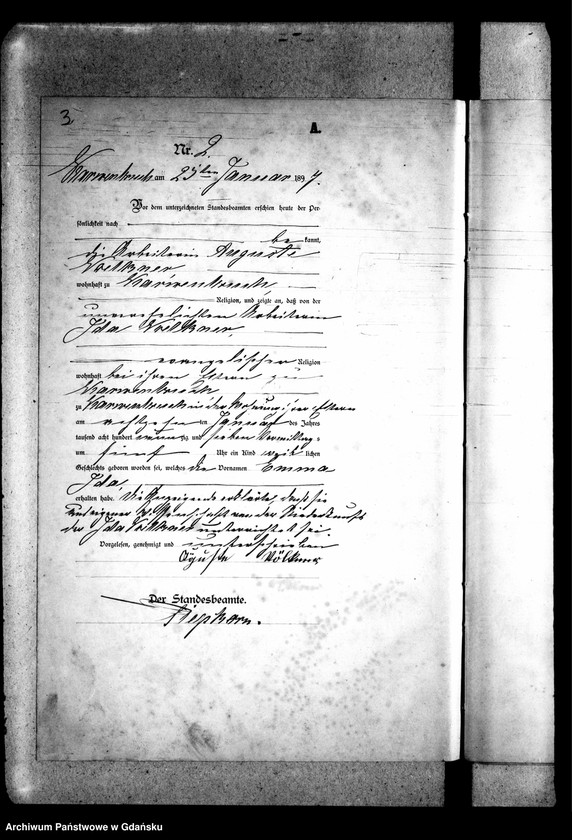 3.
A.
Nr. 2.
Karwenbruch am 25ten Januar 1897.
Vor dem unterzeichneten Standesbeamten erschien heute der Per-
sönlichkeit nach
be kannt,
die Arbeiterin Auguste
Voelkner
wohnhaft zu Karwenbruch
Religion, und zeigte an, daß von der
unverehelichten Arbeiterin
Ida Voelkner,
evangelischer Religion
wohnhaft bei ihren Eltern zu
Karwenbruch
zu Karwenbruch in der Wohnung ihrer Eltern
am ten Januar des Jahres
tausend acht hundert neunzig und sieben Vormittags
um fünf Uhr ein Kind weiblichen
Geschlechts geboren worden sei, welches die Vornamen Emma
Ida,
erhalten habe. Die Anzeigende erklärte, daß sie
aus eigener Wissenschaft von der Niederkunft
der Ida Voelkner unterrichtet sei.
Vorgelesen, genehmigt und unterschrieben
Völkner
Der Standesbeamte.
Archiwum Państwowe w Gdańsku